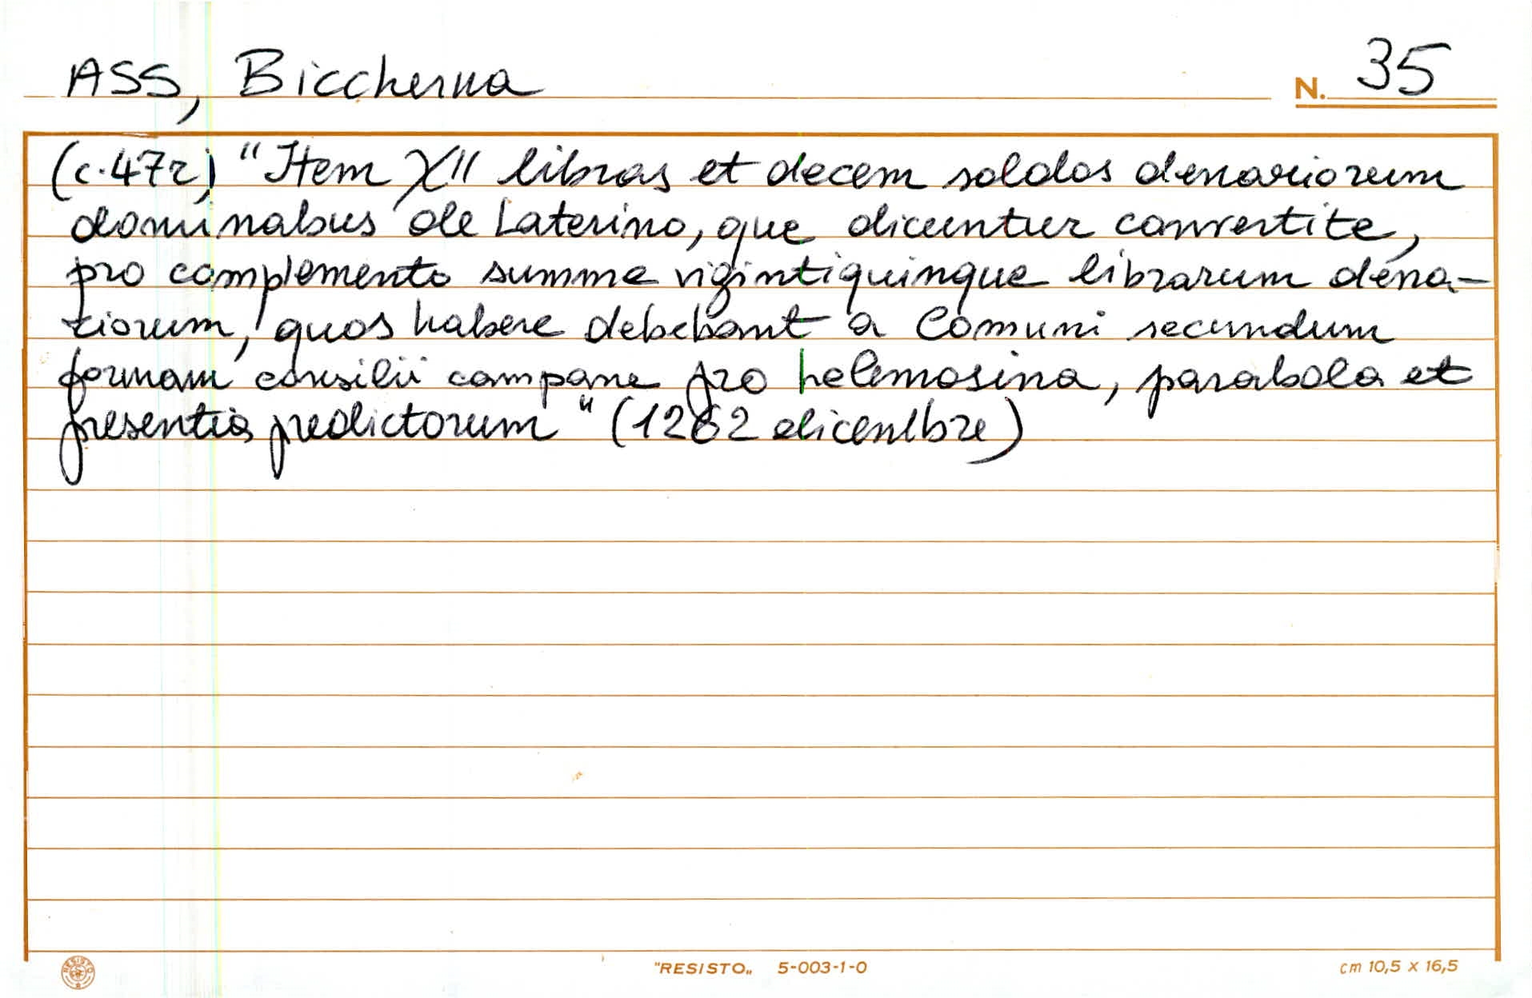 ASS, Biccherna
N. 35
(c. 47r) "Item XII libras et decem soldos denariorum
dominabus de Laterino, que dicuntur convertite,
pro complemento summe vigintiquinque librarum dena-
riorum, quos habere debebant a Comuni secundum
formam consilii campane pro helemosina, parabola et
presentia predictorum" (1262 dicembre)
RESISTO
"RESISTO„ 5-003-1-0
cm 10,5 x 16,5